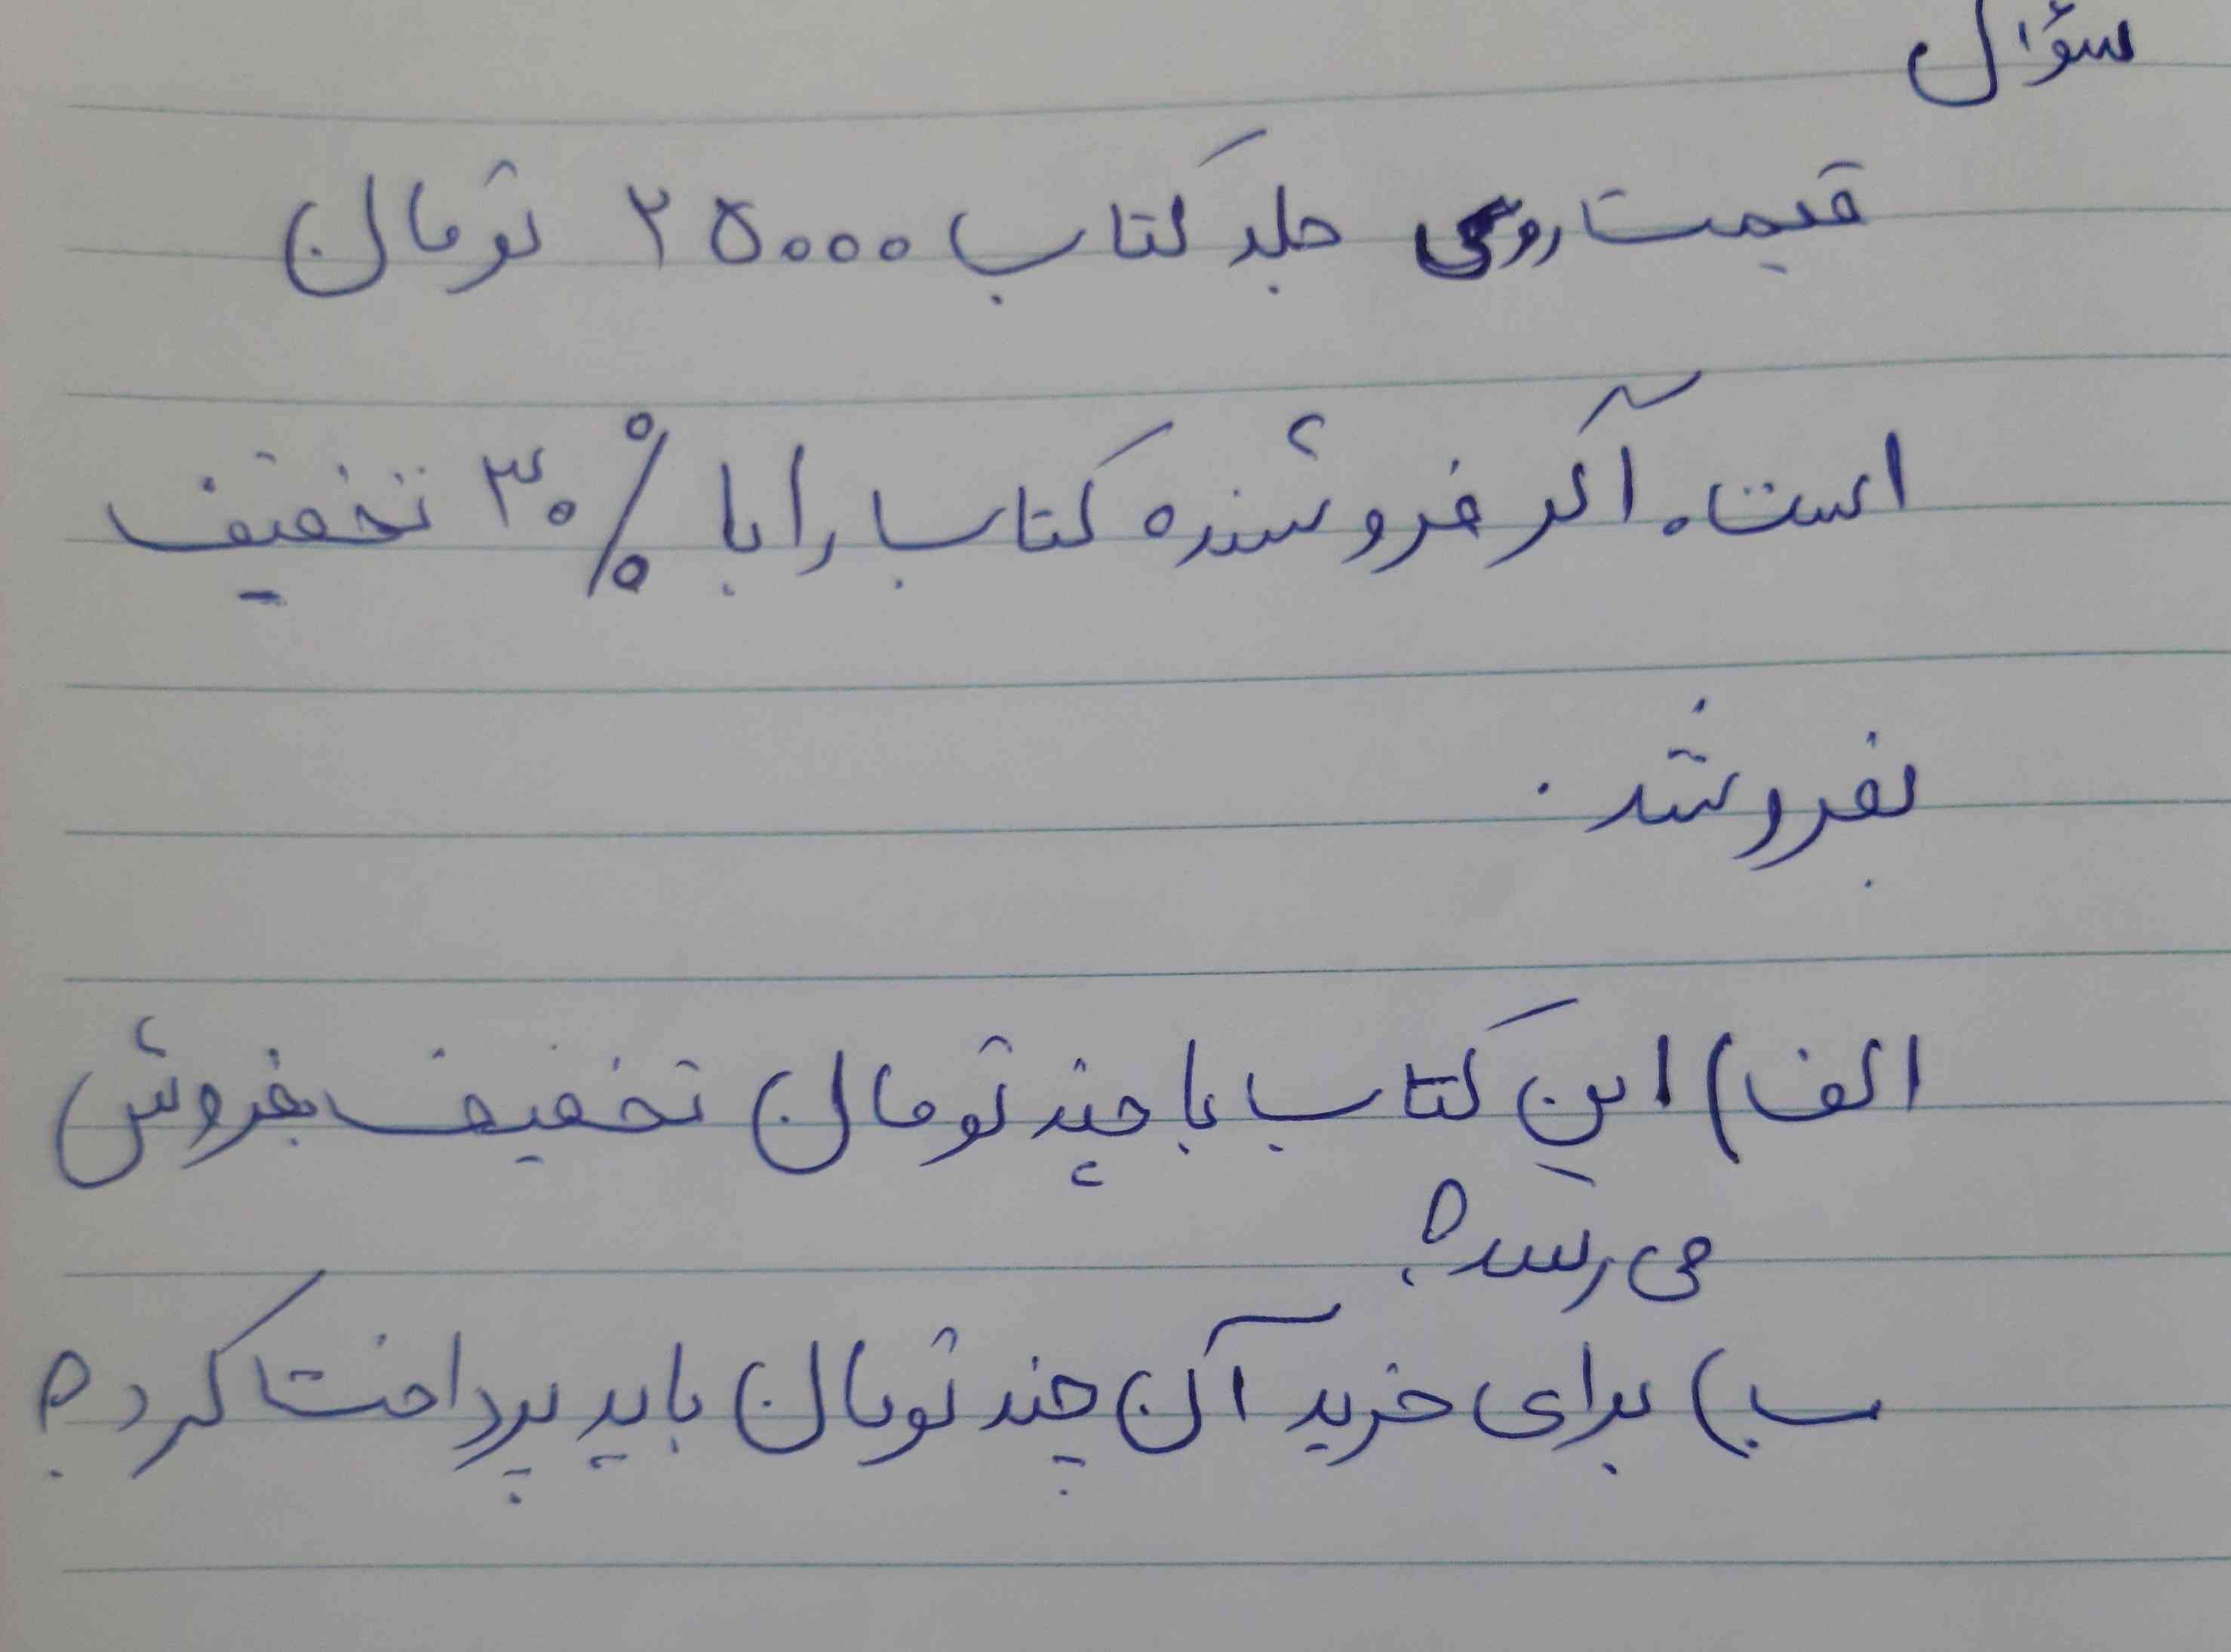 سؤال
قیمت روی جلد کتاب ۲۵۰۰۰ تومان
است. اگر فروشنده کتاب را با ۳۰٪ تخفیف
بفروشد.
الف) این کتاب با چند تومان تخفیف بفروش
می‌رسد؟
ب) برای خرید آن چند تومان باید پرداخت کرد؟